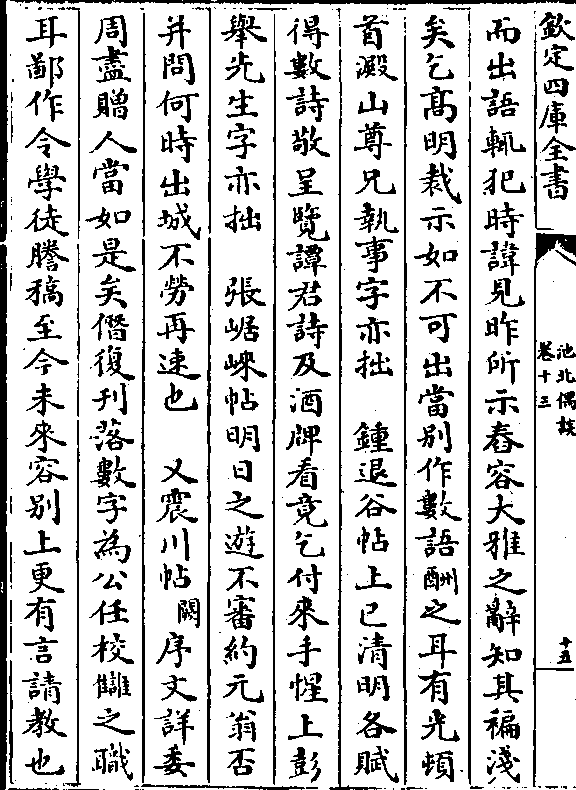 欽定四庫全書
池北偶談
卷十三
十五
而出語輒犯時諱見昨所示舂容大雅之辭知其褊淺
矣乞髙明裁示如不可出當别作數語酬之耳有光頓
首澱山尊兄執事字亦拙　鍾退谷帖上巳清明各賦
得數詩敬呈覽譚君詩及酒牌看竟乞付來手惺上彭
舉先生字亦拙　張崌崍帖明日之遊不審約元翁否
并問何時出城不勞再速也　又震川帖闕序文詳委
周盡贈人當如是矣僭復刋落數字為公任校讎之職
耳鄙作令學徒謄稿至今未來容别上更有言請教也